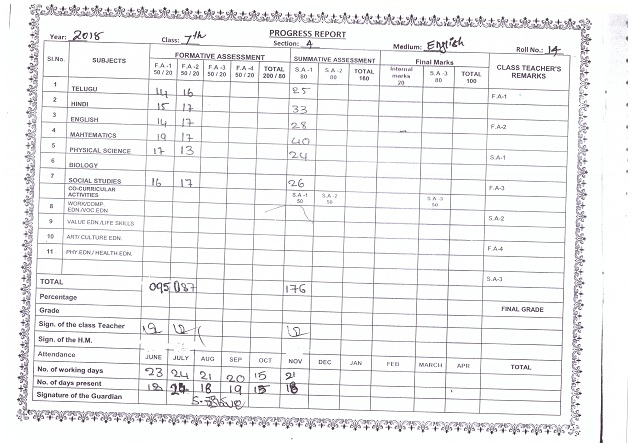 PROGRESS REPORT
Year: 2018 Class: 7th Section: A Medium: English Roll No.: 14
Sl.No. SUBJECTS FORMATIVE ASSESSMENT SUMMATIVE ASSESSMENT Final Marks CLASS TEACHER'S REMARKS
F.A -1 50 / 20 F.A -2 50 / 20 F.A -3 50 / 20 F.A -4 50 / 20 TOTAL 200 / 80 S.A -1 80 S.A -2 80 TOTAL 160 Internal marks 20 S.A -3 80 TOTAL 100
1 TELUGU 14 16 25 F.A-1
2 HINDI 15 17 33
3 ENGLISH 14 17 28 F.A-2
4 MAHTEMATICS 19 17 40
5 PHYSICAL SCIENCE 17 13 24 S.A-1
6 BIOLOGY
7 SOCIAL STUDIES 16 17 26 F.A-3
CO-CURRICULAR ACTIVITIES S.A -1 50 S.A -2 50 S.A -3 50
8 WORK/COMP. EDN./VOC EDN. S.A-2
9 VALUE EDN./LIFE SKILLS
10 ART/ CULTURE EDN. F.A-4
11 PHY.EDN./ HEALTH EDN.
S.A-3
TOTAL 095 087 176
Percentage FINAL GRADE
Grade
Sign. of the class Teacher
Sign. of the H.M.
Attendance JUNE JULY AUG SEP OCT NOV DEC JAN FEB MARCH APR TOTAL
No. of working days 23 24 21 20 15 21
No. of days present 18 19 15 18
Signature of the Guardian